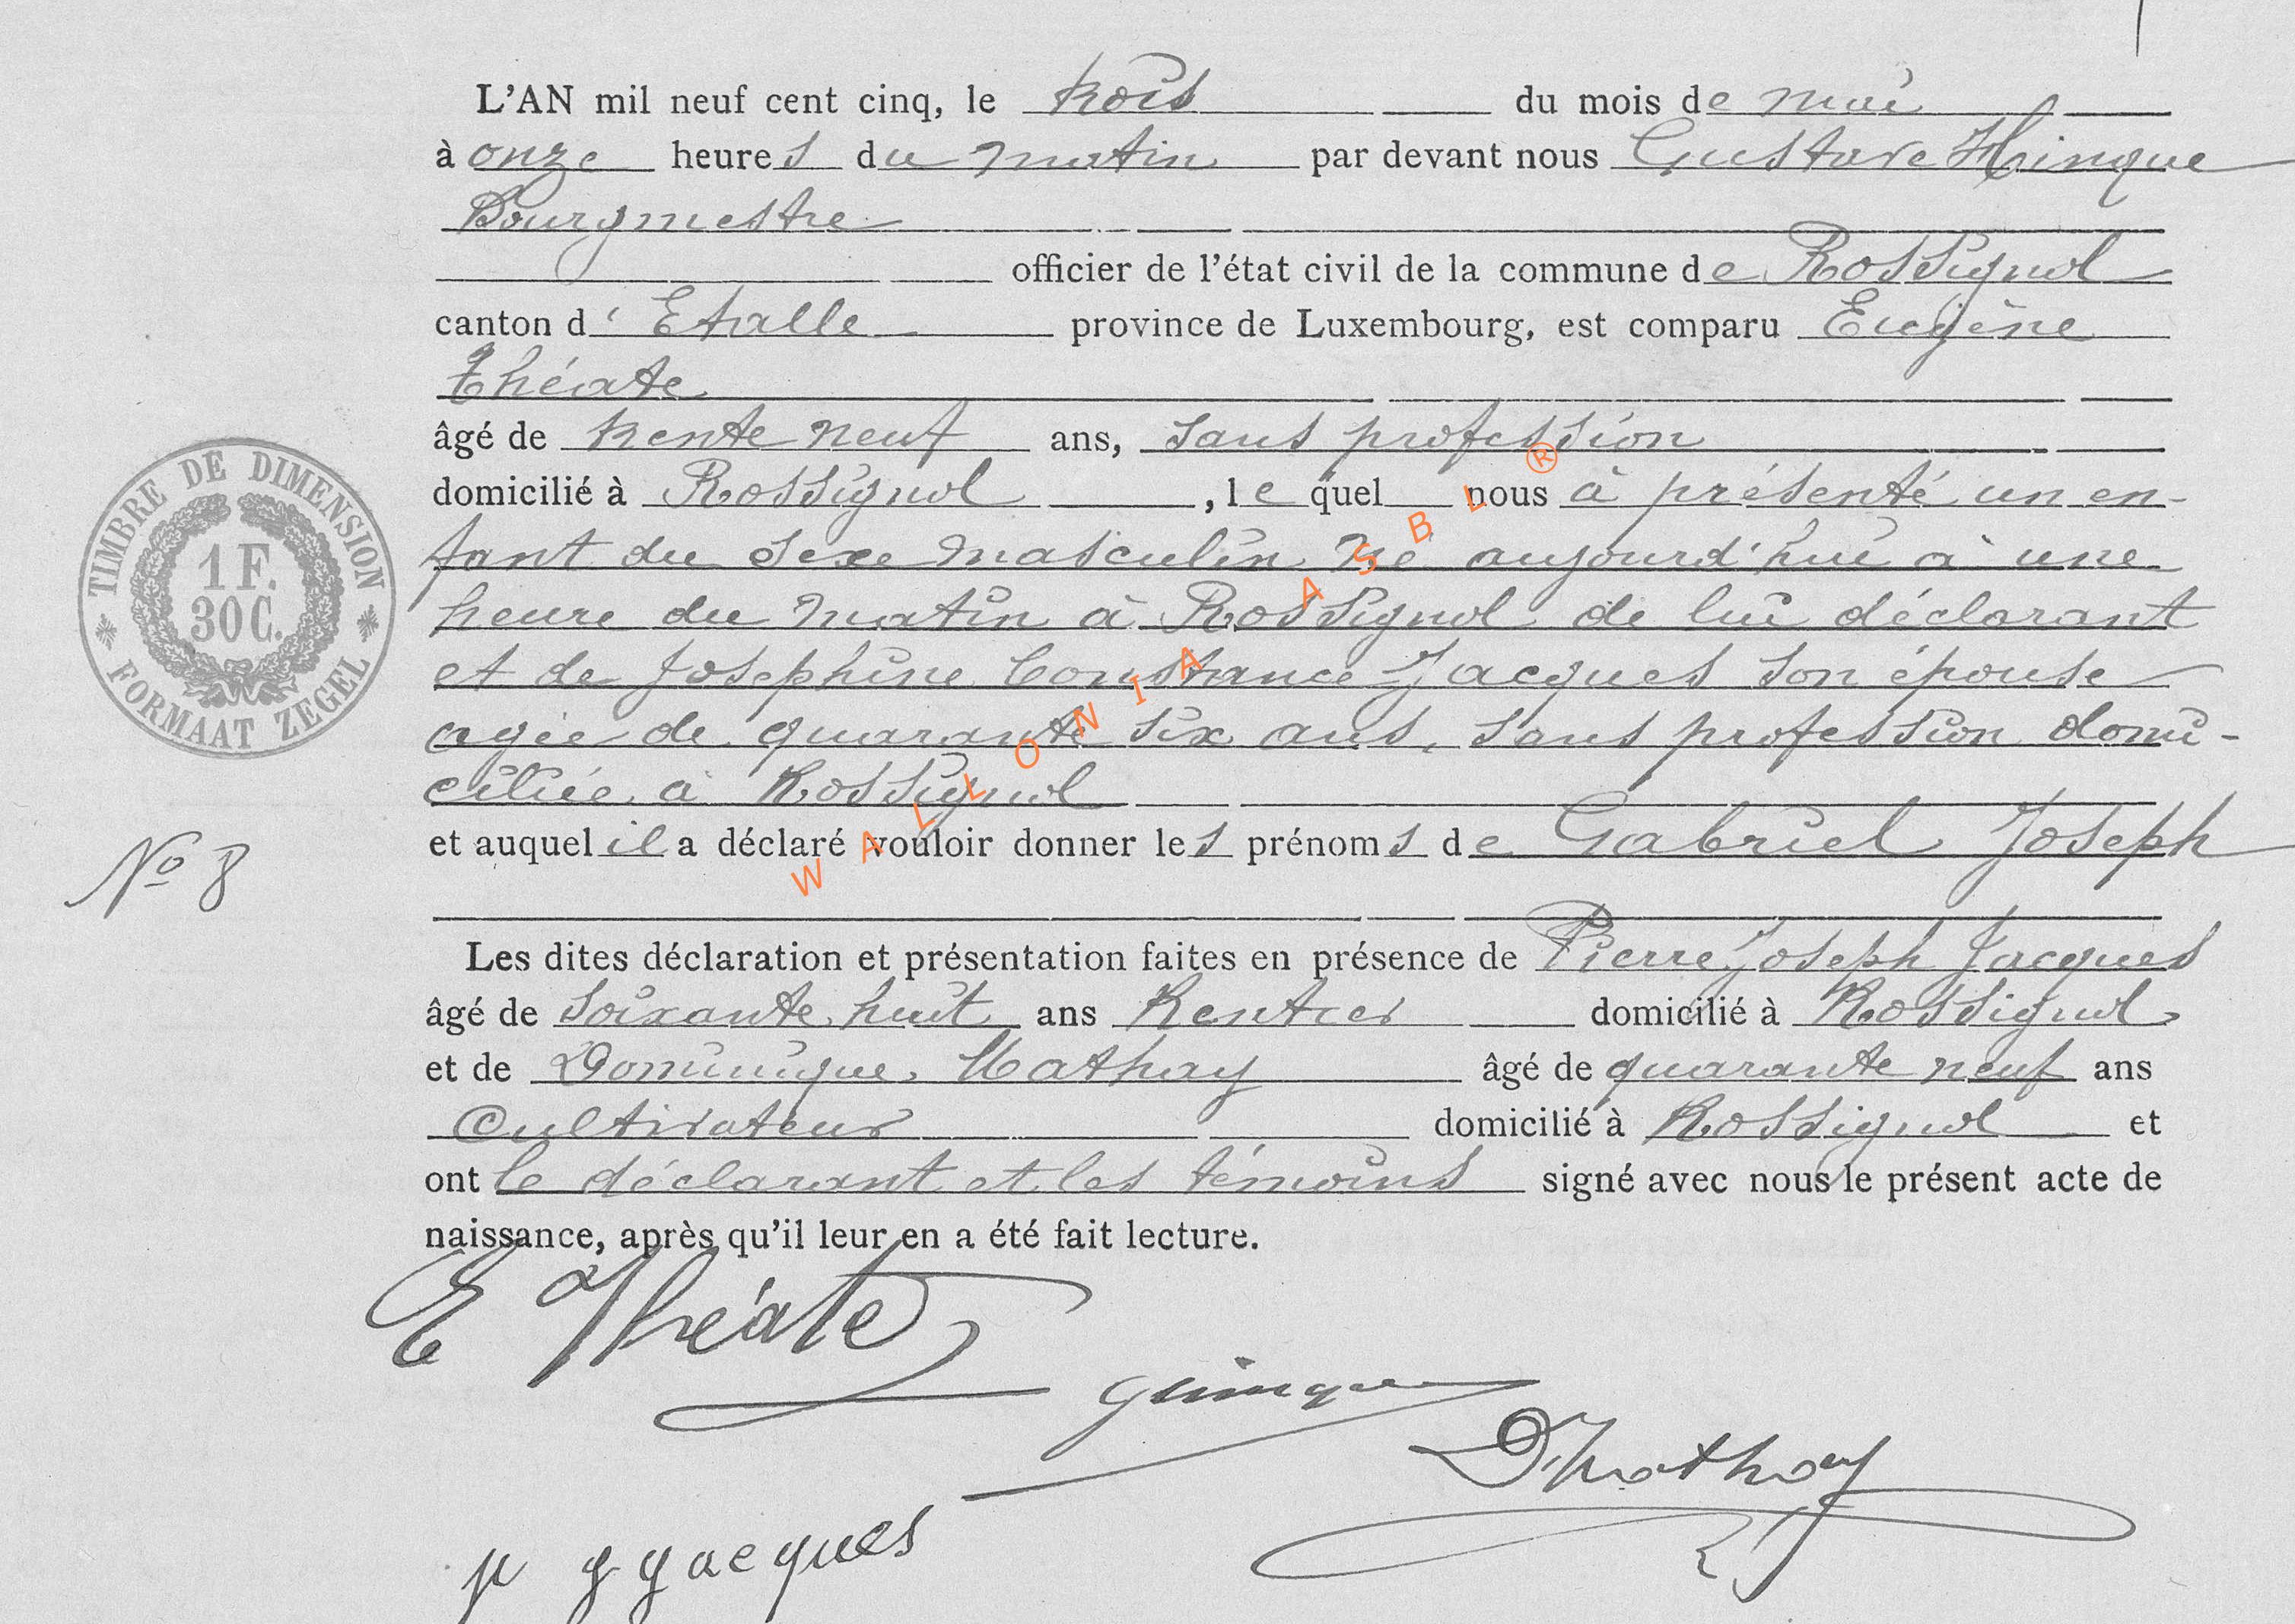 L'AN mil neuf cent cinq, le trois du mois de mai
à onze heures du matin par devant nous Gustave Hinque
Bourgmestre
officier de l'état civil de la commune de Rossignol
canton d'Etalle province de Luxembourg, est comparu Eugène
Théate
âgé de trente neuf ans, sans profession
domicilié à Rossignol, lequel nous à présenté un en-
fant du sexe masculin né aujourd'hui à une
heure du matin à Rossignol de lui déclarant
et de Joséphine Constance Jacques son épouse
agée de quarante six ans, sans profession domi-
ciliée à Rossignol
et auquel il a déclaré vouloir donner les prénoms de Gabriel Joseph
Les dites déclaration et présentation faites en présence de Pierre Joseph Jacques
âgé de soixante huit ans Rentier domicilié à Rossignol
et de Dominique Mathay âgé de quarante neuf ans
Cultivateur domicilié à Rossignol et
ont le déclarant et les témoins signé avec nous le présent acte de
naissance, après qu'il leur en a été fait lecture.
TIMBRE DE DIMENSION
1 F.
30 C.
FORMAAT ZEGEL
No 8
WALLONIA ASBL ®
E Théate
GHinque
D Mathay
p J Jacques